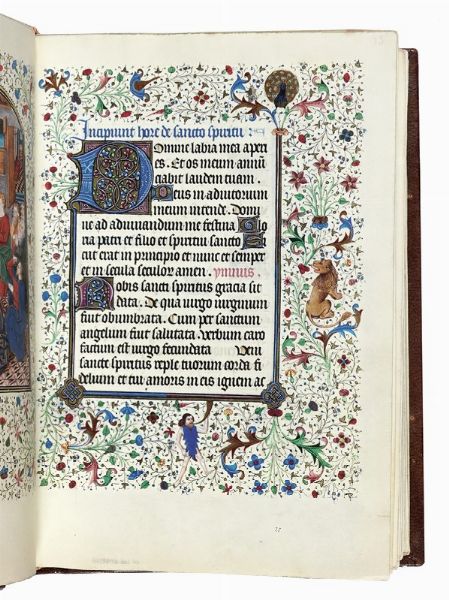 Incipiunt hore de sancto spiritu :
Domine labia mea aperi
es. Et os meum annū
ciabit laudem tuam.
Deus in adiutorium
meum intende. Domi
ne ad adiuuandum me festina Glo
ria patri et filio et spiritui sancto
Sicut erat in principio et nunc et semper
et in secula seculoꝝ amen. ymnus.
Nobis sancti spiritus gracia sit
data. De qua uirgo uirginum
fuit obumbrata. Cum per sanctum
angelum fuit salutata. Verbum caro
factum est uirgo fecundata Veni
sancte spiritus reple tuorum corda fi
delium et tui amoris in eis ignem ac